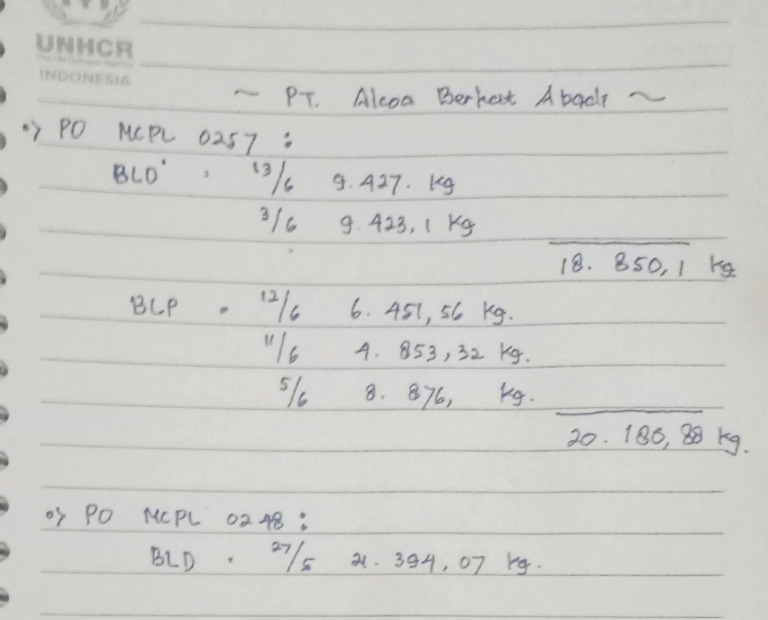 UNHCR
INDONESIA
~ PT. Alcoa Berkat Abadi ~
•> PO MCPL 0257 :
BLD • 13/6 9.427. Kg
3/6 9.423,1 Kg
18. 850,1 Kg
BLP • 12/6 6. 451,56 Kg.
11/6 4. 853,32 Kg.
5/6 8. 876, Kg.
20. 180,88 Kg.
•> PO MCPL 0248 :
BLD • 27/5 394,07 Kg.